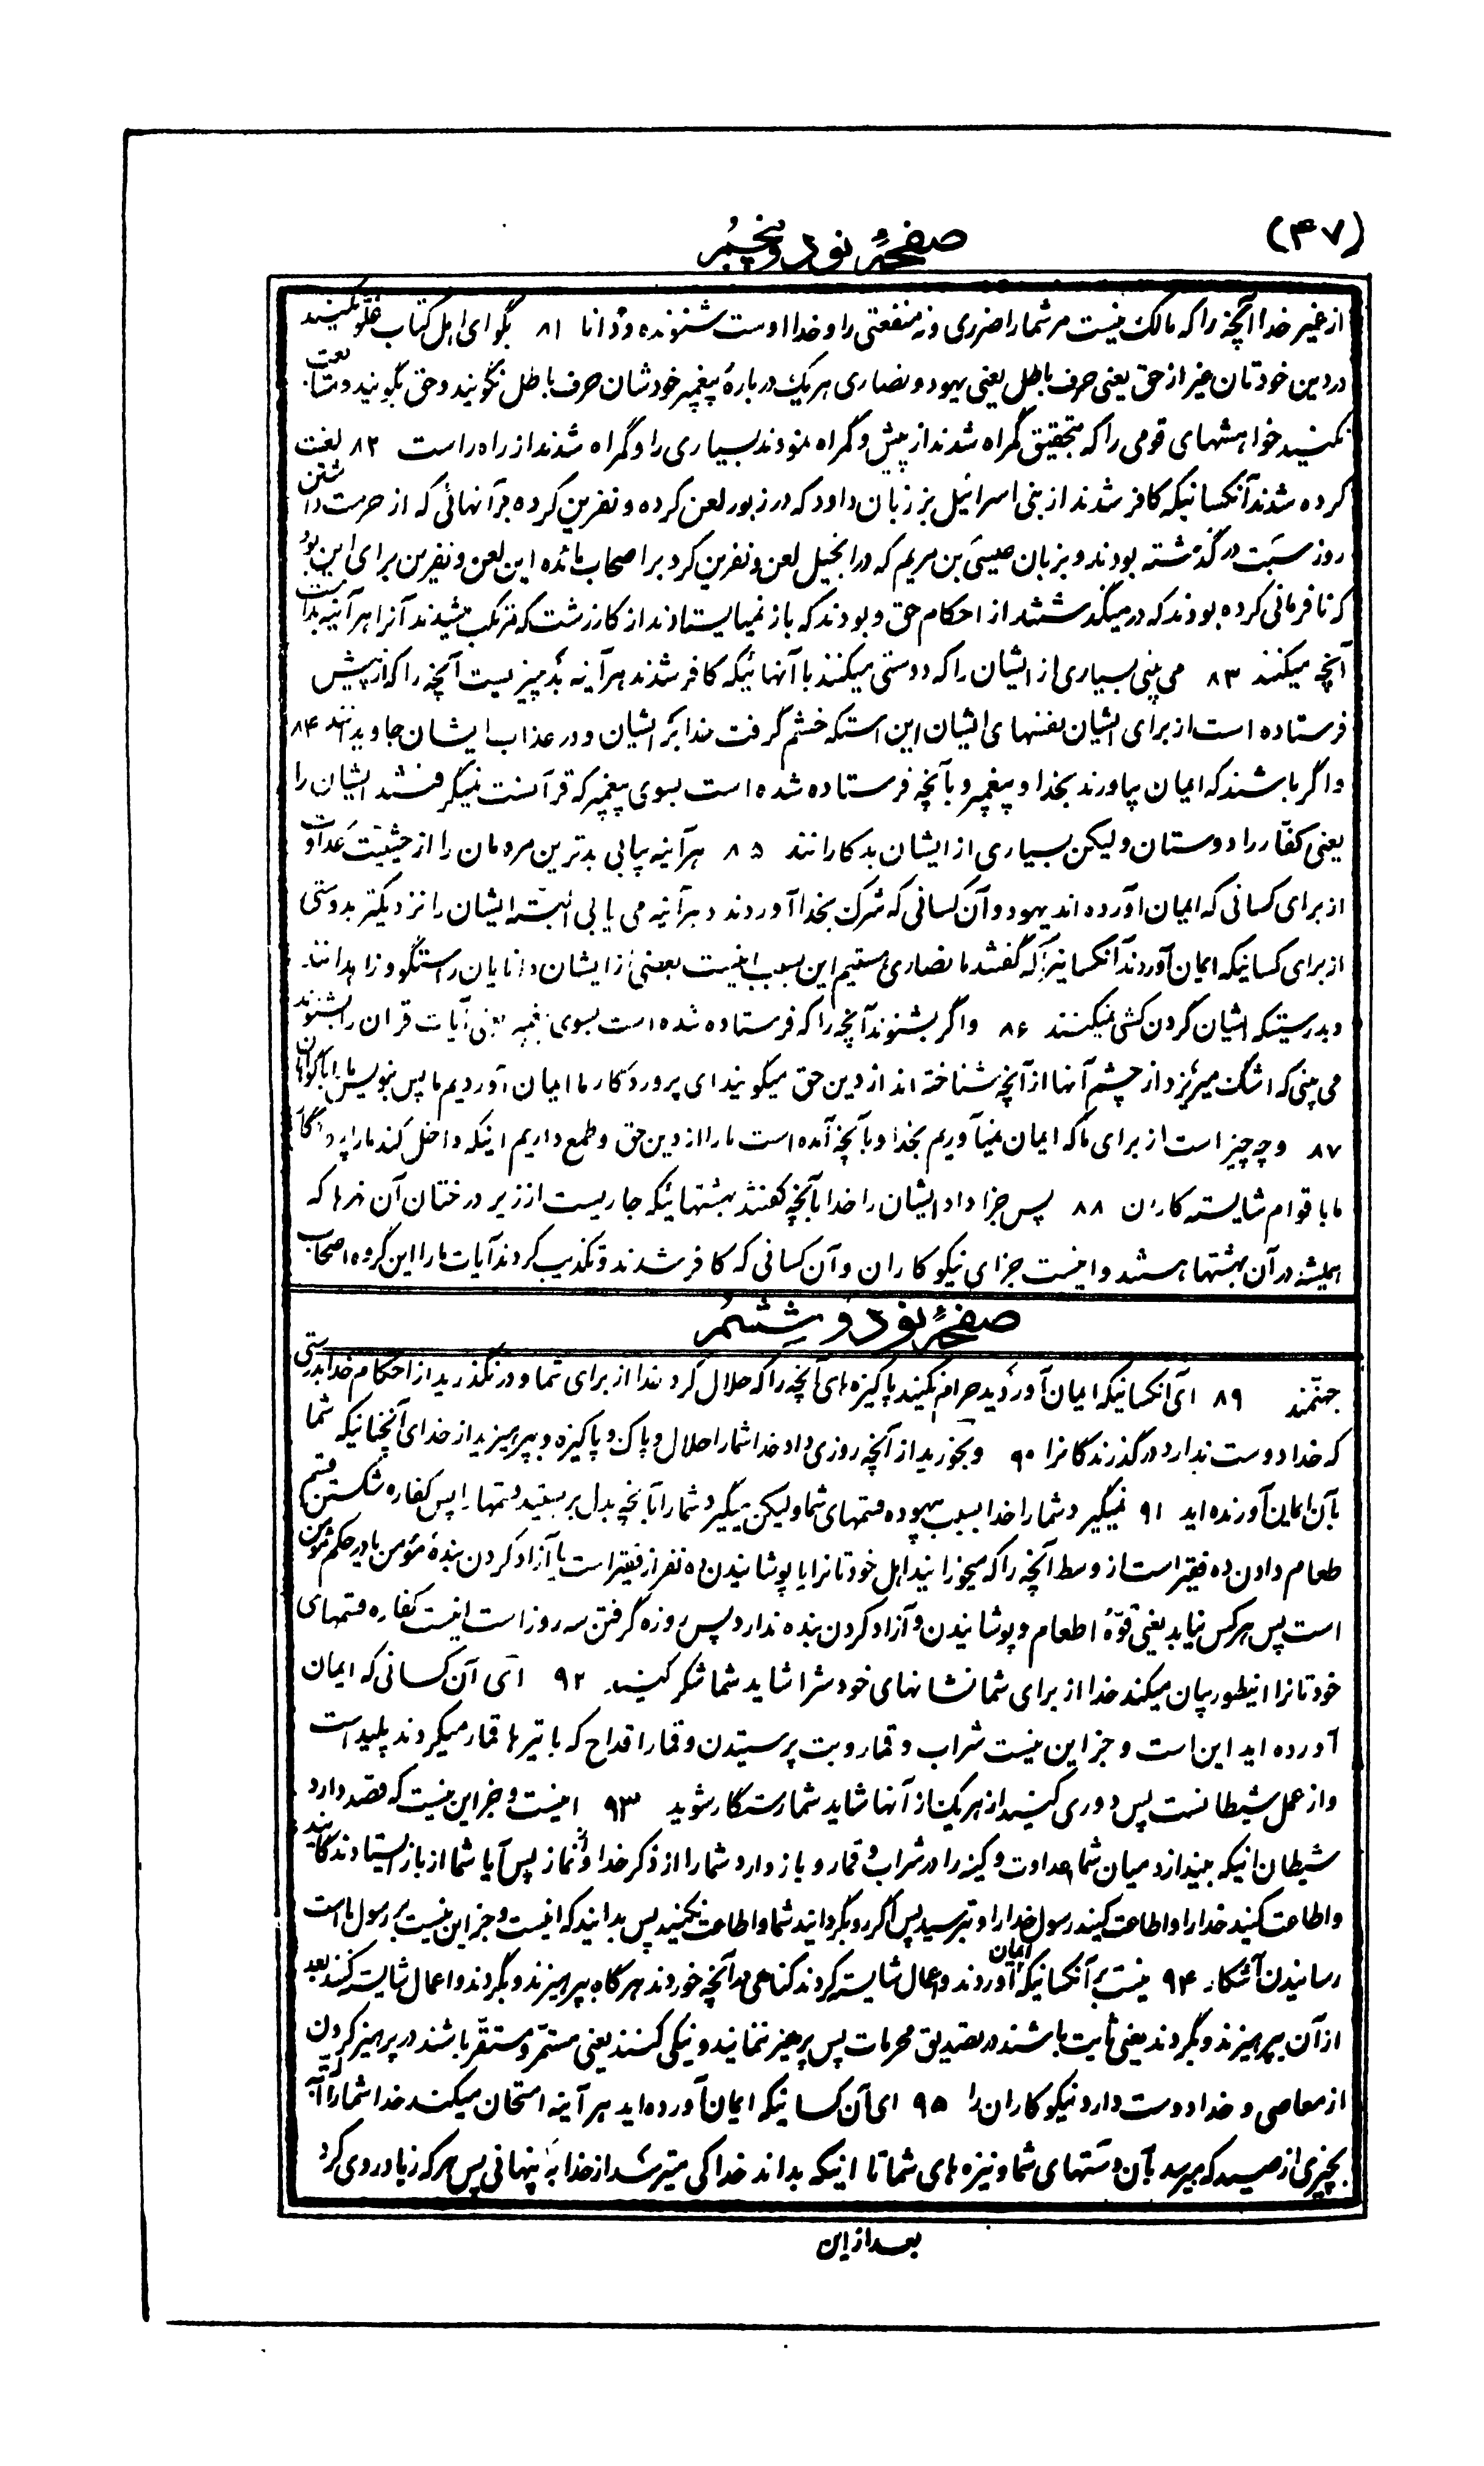 (۴۷)
صفحهٔ نود و پنجم
از غیر خدا آنچه را که مالک نیست مر شما را ضرری و نه منفعتی را و خدا اوست شنونده و دانا ۸۱ بگو ای اهل کتاب غلو نکنید
در دین خودتان غیر از حق یعنی حرف باطل یعنی یهود و نصاری هر یک در بارهٔ پیغمبر خودشان حرف باطل نگویند و حق بگویند و متابعت
نکنید خواهشهای قومی را که بتحقیق گمراه شدند از پیش و گمراه نمودند بسیاری را و گمراه شدند از راه راست ۸۲ لعنت
کرده شدند آنکسانیکه کافر شدند از بنی اسرائیل بر زبان داود که در زبور لعن کرده و نفرین کرده بر آنهائی که از حرمت داشتن
روز سبت در گذشته بودند و بزبان عیسی بن مریم که در انجیل لعن و نفرین کرد بر اصحاب مائده این لعن و نفرین برای این بود
که نافرمانی کرده بودند که در میگذشتند از احکام حق و بودند که باز نمیایستادند از کار زشت که مرتکب میشدند آنرا هر آینه بد است
آنچه میکنند ۸۳ می بینی بسیاری از ایشان را که دوستی میکنند با آنهائیکه کافر شدند هر آینه بد چیزیست آنچه را که از پیش
فرستاده است از برای ایشان نفسهای ایشان این استکه خشم گرفت خدا بر ایشان و در عذاب ایشان جاویدانند ۸۴
و اگر باشند که ایمان بیاورند بخدا و پیغمبر و بآنچه فرستاده شده است بسوی پیغمبر که قرآنست نمیگرفتند ایشان را
یعنی کفار را دوستان ولیکن بسیاری از ایشان بدکارانند ۸۵ هر آینه بیابی بدترین مردمان را از حیثیت عداوت
از برای کسانی که ایمان آورده اند یهود و آن کسانی که شرک بخدا آوردند و هر آینه می یابی البته ایشان را نزدیکتر بدوستی
از برای کسانیکه ایمان آوردند آنکسانیرا که گفتند ما نصاری هستیم این بسبب اینست بعضی از ایشان دانایان راستگو و زاهدانند
و بدرستیکه ایشان گردن کشی نمیکنند ۸۶ و اگر بشنوند آنچه را که فرستاده شده است بسوی پیغمبر یعنی آیات قران را بشنوند
می بینی که اشک میریزد از چشم آنها از آنچه شناخته اند از دین حق میگویند ای پروردگار ما ایمان آوردیم ما پس بنویس ما را با گواهان
۸۷ و چه چیز است از برای ما که ایمان نمیآوریم بخدا و بآنچه آمده است ما را از دین حق و طمع داریم اینکه داخل کند ما را پروردگار
ما با قوام شایسته کاران ۸۸ پس جزا داد ایشان را خدا بآنچه گفتند بهشتهائیکه جاریست از زیر درختان آن نهرها که
همیشه در آن بهشتها هستند و اینست جزای نیکوکاران و آن کسانی که کافر شدند و تکذیب کردند آیات ما را این گروه اصحاب
صفحهٔ نود و ششم
جهنمند ۸۹ ای آنکسانیکه ایمان آوردید حرام نکنید پاکیزه های آنچه را که حلال کرد خدا از برای شما و در نگذرید از احکام خدا بدرستی
که خدا دوست ندارد در گذرندگانرا ۹۰ و بخورید از آنچه روزی داد خدا شما را حلال و پاک و پاکیزه و بپرهیزید از خدای آنچنانیکه شما
بآن ایمان آورنده اید ۹۱ نمیگیرد شما را خدا بسبب بیهوده قسمهای شما ولیکن میگیرد شما را بآنچه بدل بربستید قسمها را پس کفاره شکستن قسم
طعام دادن ده فقیر است از وسط آنچه را که میخورانید اهل خودتانرا یا پوشانیدن ده نفر از فقیر است یا آزاد کردن بندهٔ مؤمن یا در حکم مؤمن
است پس هر کس نیابد یعنی قوهٔ اطعام و پوشانیدن و آزاد کردن بنده ندارد پس روزه گرفتن سه روز است اینست کفاره قسمهای
خودتانرا اینطور بیان میکند خدا از برای شما نشانهای خودشرا شاید شما شکر کنید ۹۲ ای آن کسانی که ایمان
آورده اید این است و جز این نیست شراب و قمار و بت پرستیدن و قمار اقداح که با تیرها قمار میکردند پلید است
و از عمل شیطانست پس دوری کنید از هر یک از آنها شاید شما رستگار شوید ۹۳ اینست و جز این نیست که قصد دارد
شیطان اینکه بیندازد میان شما عداوت و کینه را در شراب و قمار و باز دارد شما را از ذکر خدا و از نماز پس آیا شما از باز ایستادندگانید
و اطاعت کنید خدا را و اطاعت کنید رسول خدا را و بترسید پس اگر رو بگردانید شما و اطاعت نکنید پس بدانید که اینست و جز این نیست بر رسول ما است
رسانیدن آشکار ۹۴ نیست بر آنکسانیکه ایمان آوردند و اعمال شایسته کردند گناهی در آنچه خوردند هر گاه بپرهیزند و بگردند و اعمال شایسته کنند بعد
از آن بپرهیزند و بگردند یعنی ثابت باشند در تصدیق محرمات پس پرهیز نمایند و نیکی کنند یعنی مستمر و مستقر باشند در پرهیز کردن
از معاصی و خدا دوست دارد نیکوکاران را ۹۵ ای آن کسانیکه ایمان آورده اید هر آینه امتحان میکند خدا شما را البته
بچیزی از صید که میرسد بآن دستهای شما و نیزه های شما تا اینکه بداند خدا کی میترسد از خدا به پنهانی پس هر که زیاد روی کرد
بعد از این